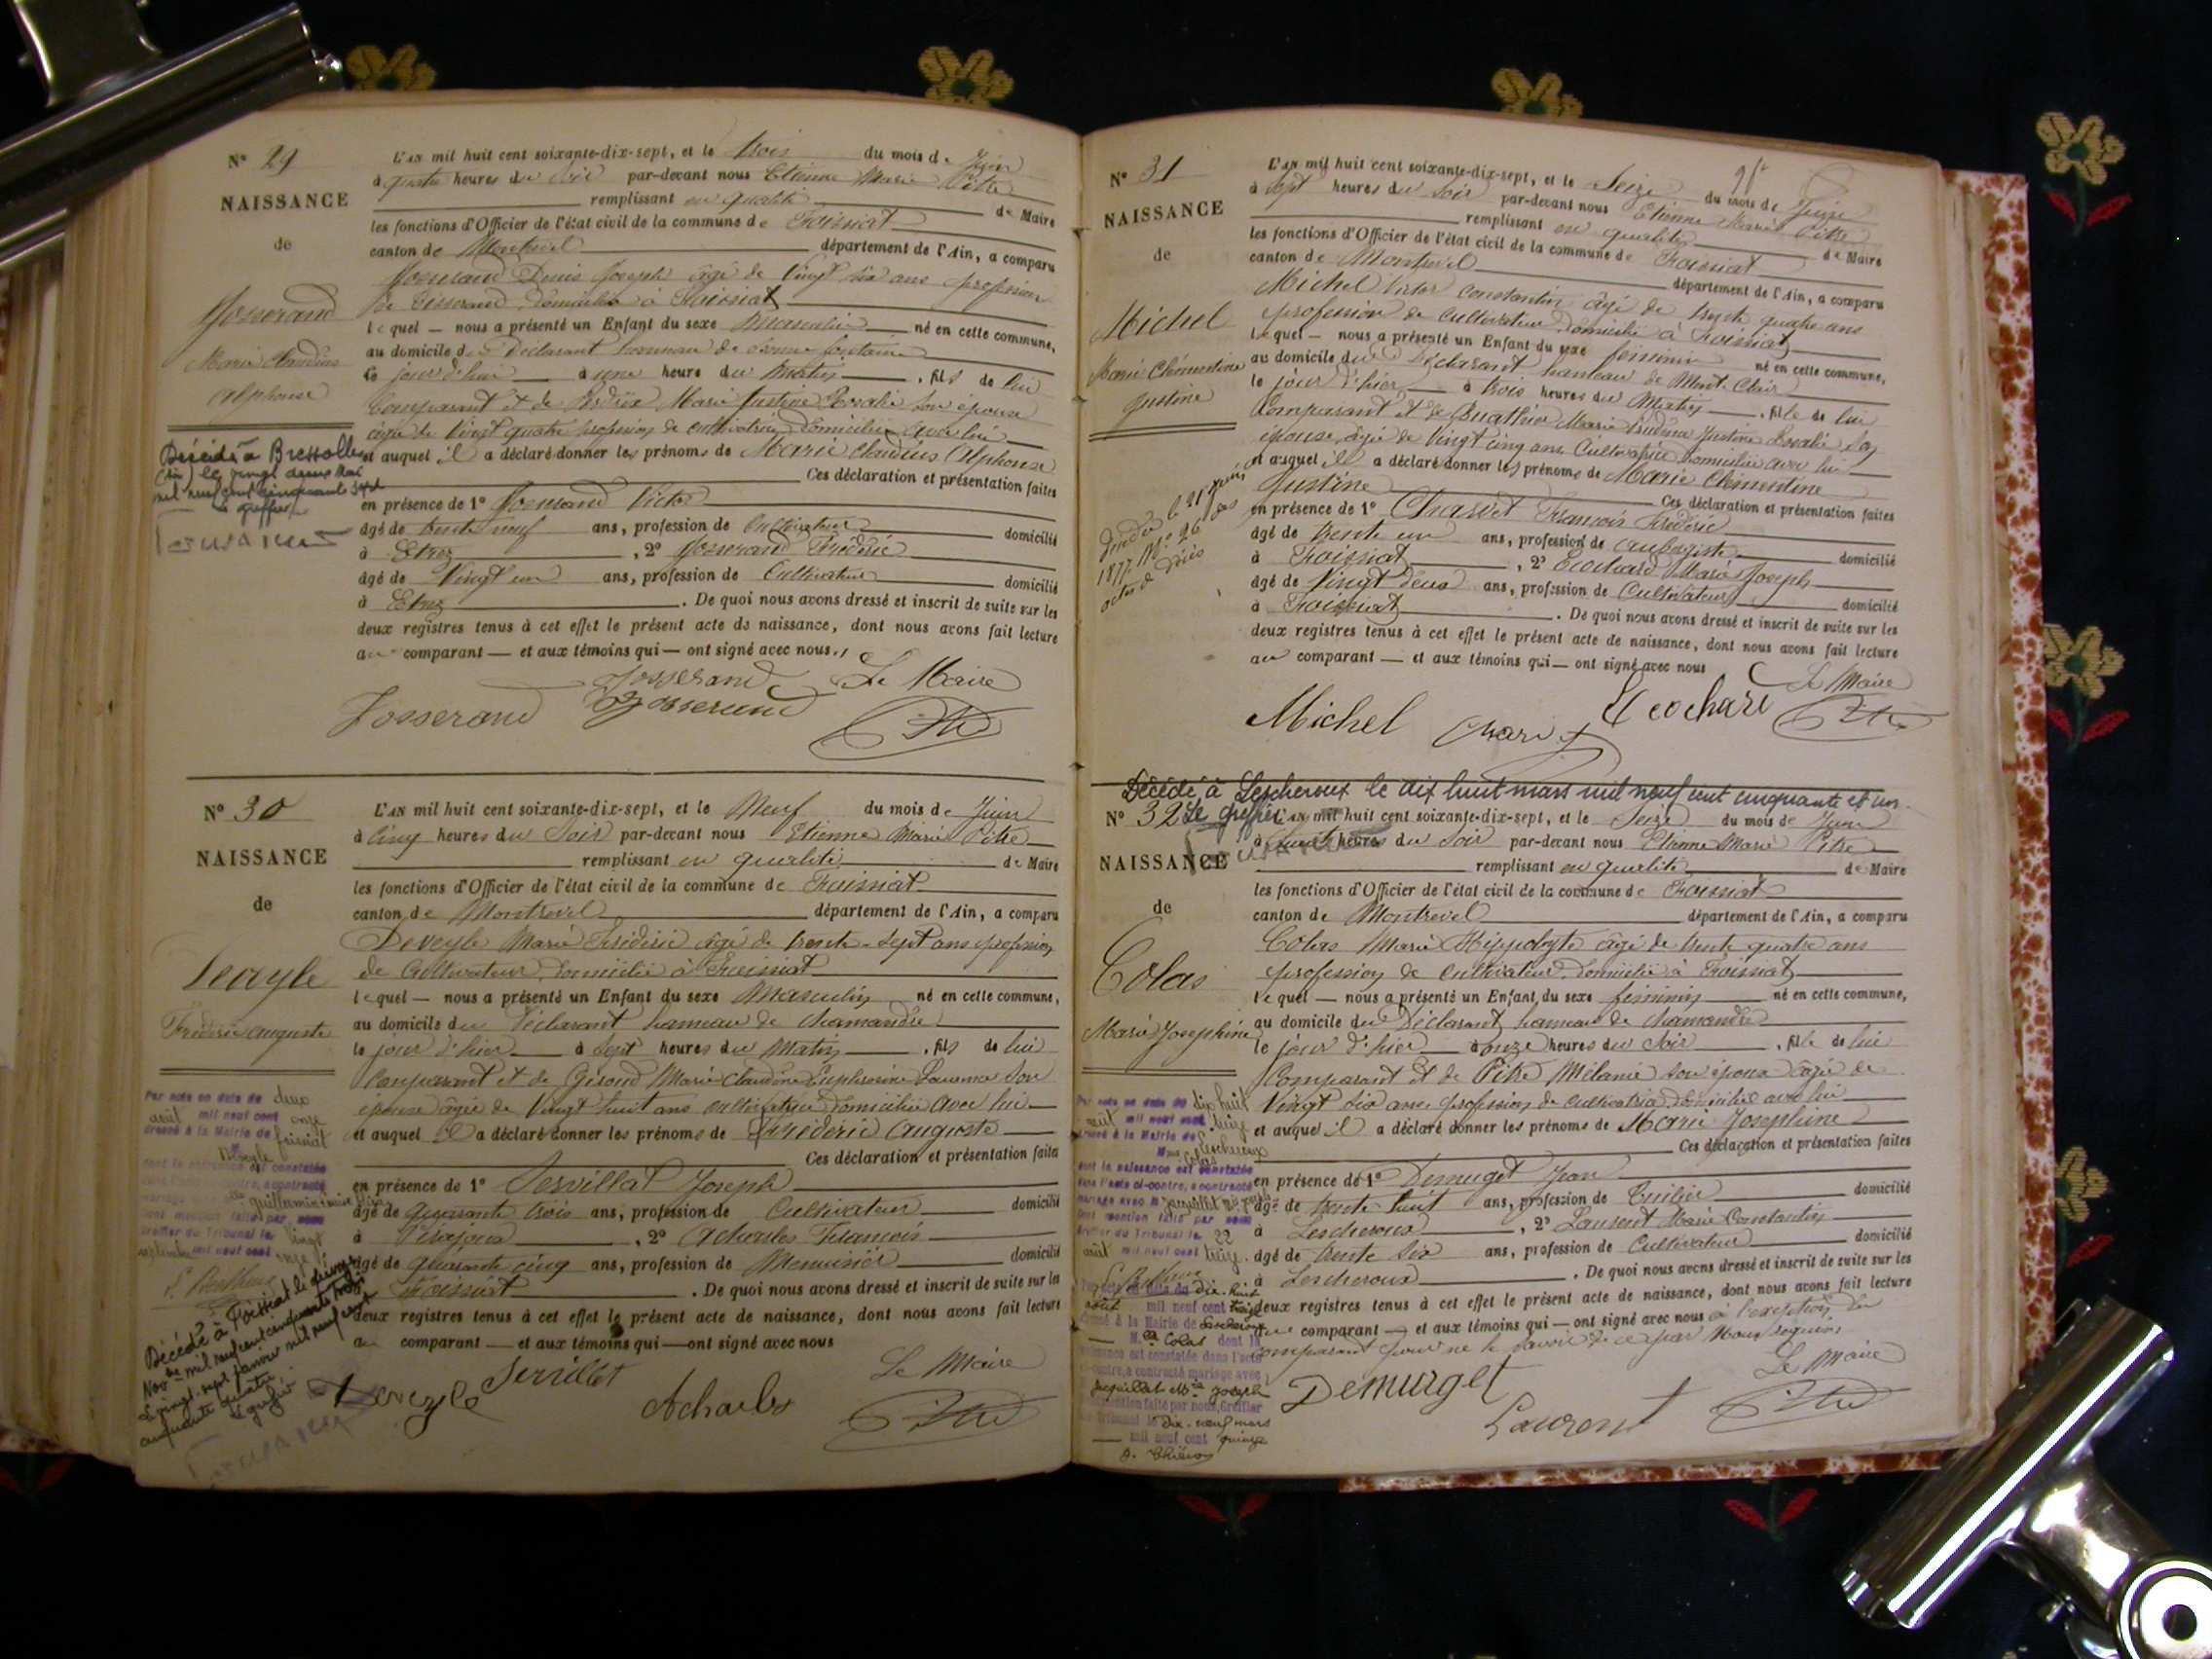 N° 29
NAISSANCE
de
Josserand
Marie Claudius
Alphonse
Décédé à Bressolles
(Ain) le vingt deux Mai
mil neuf cent cinquante sept
Le greffier
L'AN mil huit cent soixante-dix-sept, et le trois du mois de Juin
à quatre heures du soir par-devant nous Etienne Marie Pitre
remplissant en qualité de Maire
les fonctions d'Officier de l'état civil de la commune de Foissiat
canton de Montrevel département de l'Ain, a comparu
Josserand Denis Joseph âgé de vingt six ans profession
de Tisserand domicilié à Foissiat
lequel — nous a présenté un Enfant du sexe Masculin né en cette commune,
au domicile du Déclarant hameau de
le jour d'hier à une heure du matin, fils de lui
Comparant et de Marie Justine Rosalie son épouse
âgée de vingt quatre profession de cultivatrice domiciliée avec lui
et auquel il a déclaré donner les prénoms de Marie Claudius Alphonse
Ces déclaration et présentation faites
en présence de 1° Josserand Victor
âgé de trente neuf ans, profession de Cultivateur domicilié
à Etrez, 2° Josserand Frédéric
âgé de Vingt un ans, profession de Cultivateur domicilié
à Etrez. De quoi nous avons dressé et inscrit de suite sur les
deux registres tenus à cet effet le présent acte de naissance, dont nous avons fait lecture
au comparant — et aux témoins qui — ont signé avec nous.
Josserand Le Maire
Josserand Josserand Pitre
N° 30
NAISSANCE
de
Deveyle
Frédéric Auguste
Par acte en date du deux
août mil neuf cent onze
dressé à la Mairie de Foissiat
Deveyle
dont la naissance est constatée
dans l'acte ci-contre, a contracté
mariage avec
Dont mention faite par nous
Greffier du Tribunal le vingt
septembre mil neuf cent onze
Décédé à Foissiat le
Nov mil neuf cent cinquante trois
Le vingt-sept janvier mil neuf cent
cinquante quatre
Le greffier
L'AN mil huit cent soixante-dix-sept, et le Neuf du mois de Juin
à cinq heures du Soir par-devant nous Etienne Marie Pitre
remplissant en qualité de Maire
les fonctions d'Officier de l'état civil de la commune de Foissiat
canton de Montrevel département de l'Ain, a comparu
Deveyle Marie Frédéric âgé de trente-sept ans profession
de Cultivateur domicilié à Foissiat
lequel — nous a présenté un Enfant du sexe Masculin né en cette commune,
au domicile du Déclarant hameau de Chamandré
le jour d'hier à sept heures du Matin, fils de lui
Comparant et de Giroud Marie Claudine Euphrosine Laurence son
épouse âgée de Vingt huit ans cultivatrice domiciliée avec lui
et auquel il a déclaré donner les prénoms de Frédéric Auguste
Ces déclaration et présentation faites
en présence de 1° Servillat Joseph
âgé de quarante trois ans, profession de Cultivateur domicilié
à, 2° Acharles François
âgé de quarante cinq ans, profession de Menuisier domicilié
à Foissiat. De quoi nous avons dressé et inscrit de suite sur les
deux registres tenus à cet effet le présent acte de naissance, dont nous avons fait lecture
au comparant — et aux témoins qui — ont signé avec nous
Deveyle Servillat Acharles Le Maire
Pitre
N° 31
NAISSANCE
de
Michel
Marie Clémentine
Justine
Décédée le 21 juin
1877. N° 26 des
actes de décès
L'AN mil huit cent soixante-dix-sept, et le Seize du mois de Juin
à sept heures du Soir par-devant nous Etienne Marie Pitre
remplissant en qualité de Maire
les fonctions d'Officier de l'état civil de la commune de Foissiat
canton de Montrevel département de l'Ain, a comparu
Michel Victor Constantin âgé de trente quatre ans
profession de cultivateur domicilié à Foissiat
lequel — nous a présenté un Enfant du sexe féminin né en cette commune,
au domicile du Déclarant hameau de Mont-Clair
le jour d'hier à trois heures du Matin, fille de lui
Comparant et de Marie Justine Rosalie sa
épouse âgée de Vingt cinq ans Cultivatrice domiciliée avec lui
et auquel il a déclaré donner les prénoms de Marie Clémentine
Justine Ces déclaration et présentation faites
en présence de 1° Charvet François Frédéric
âgé de trente un ans, profession de aubergiste domicilié
à Foissiat, 2° Ecochard Marie Joseph
âgé de Vingt deux ans, profession de Cultivateur domicilié
à Foissiat. De quoi nous avons dressé et inscrit de suite sur les
deux registres tenus à cet effet le présent acte de naissance, dont nous avons fait lecture
au comparant — et aux témoins qui — ont signé avec nous
Michel Charvet Ecochard Le Maire
Pitre
Décédé à Lescheroux le dix huit mars mil neuf cent cinquante et un.
Le greffier
N° 32
NAISSANCE
de
Colas
Marie Joséphine
Par acte en date du dix huit
août mil neuf cent treize
dressé à la Mairie de Lescheroux
Mme Colas
dont la naissance est constatée
dans l'acte ci-contre, a contracté
mariage avec
Dont mention faite par nous
Greffier du Tribunal le 22
août mil neuf cent treize.
Par acte en date du dix-huit
août mil neuf cent treize
dressé à la Mairie de Lescheroux
Colas dont la
naissance est constatée dans l'acte
ci-contre, a contracté mariage avec
Joseph
Mention faite par nous, Greffier
du Tribunal le dix-neuf mars
mil neuf cent quinze
L'AN mil huit cent soixante-dix-sept, et le Seize du mois de Juin
à huit heures du Soir par-devant nous Etienne Marie Pitre
remplissant en qualité de Maire
les fonctions d'Officier de l'état civil de la commune de Foissiat
canton de Montrevel département de l'Ain, a comparu
Colas Marie Hippolyte âgé de trente quatre ans
profession de cultivateur domicilié à Foissiat
lequel — nous a présenté un Enfant du sexe féminin né en cette commune,
au domicile du Déclarant hameau de Chamandré
le jour d'hier à onze heures du Soir, fille de lui
Comparant et de Pitre Mélanie son épouse âgée de
Vingt six ans, profession de cultivatrice domiciliée avec lui
et auquel il a déclaré donner les prénoms de Marie Joséphine
Ces déclaration et présentation faites
en présence de 1° Demurget Jean
âgé de trente huit ans, profession de Tuilier domicilié
à Lescheroux, 2° Laurent Marie Constantin
âgé de trente six ans, profession de Cultivateur domicilié
à Lescheroux. De quoi nous avons dressé et inscrit de suite sur les
deux registres tenus à cet effet le présent acte de naissance, dont nous avons fait lecture
au comparant — et aux témoins qui — ont signé avec nous à l'exception du
comparant pour ne le savoir de ce par Nous requis
Demurget Laurent Le Maire
Pitre